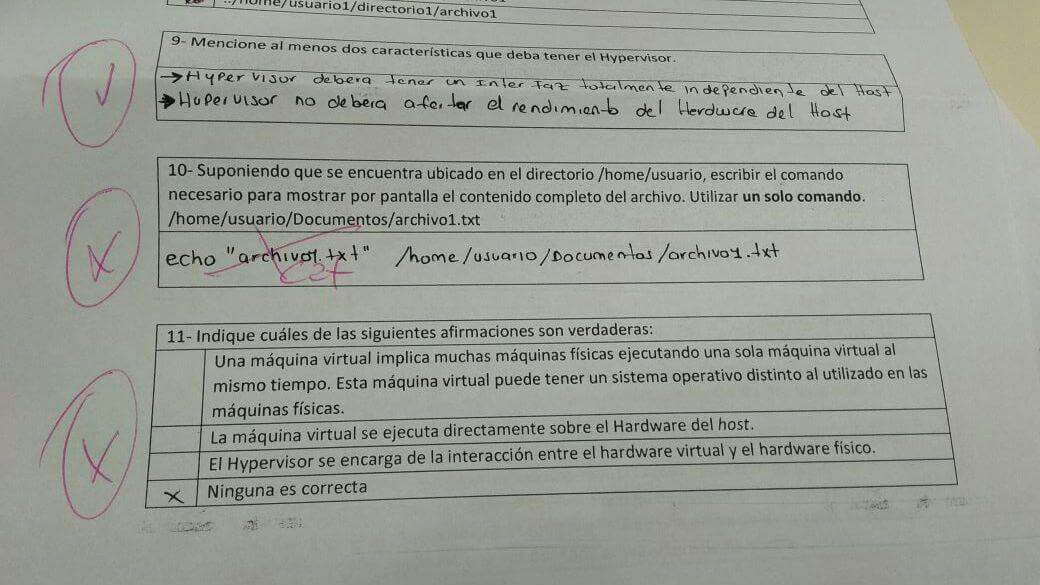 ../home/usuario1/directorio1/archivo1
9- Mencione al menos dos características que deba tener el Hypervisor.
→Hypervisor debera tener un Interfaz totalmente independiente del Host
→Hupervisor no debera afectar el rendimiento del Herdwere del Host
10- Suponiendo que se encuentra ubicado en el directorio /home/usuario, escribir el comando
necesario para mostrar por pantalla el contenido completo del archivo. Utilizar un solo comando.
/home/usuario/Documentos/archivo1.txt
echo "archivo1.txt" /home/usuario/Documentos/archivo1.txt
cat
11- Indique cuáles de las siguientes afirmaciones son verdaderas:
Una máquina virtual implica muchas máquinas físicas ejecutando una sola máquina virtual al
mismo tiempo. Esta máquina virtual puede tener un sistema operativo distinto al utilizado en las
máquinas físicas.
La máquina virtual se ejecuta directamente sobre el Hardware del host.
El Hypervisor se encarga de la interacción entre el hardware virtual y el hardware físico.
x Ninguna es correcta